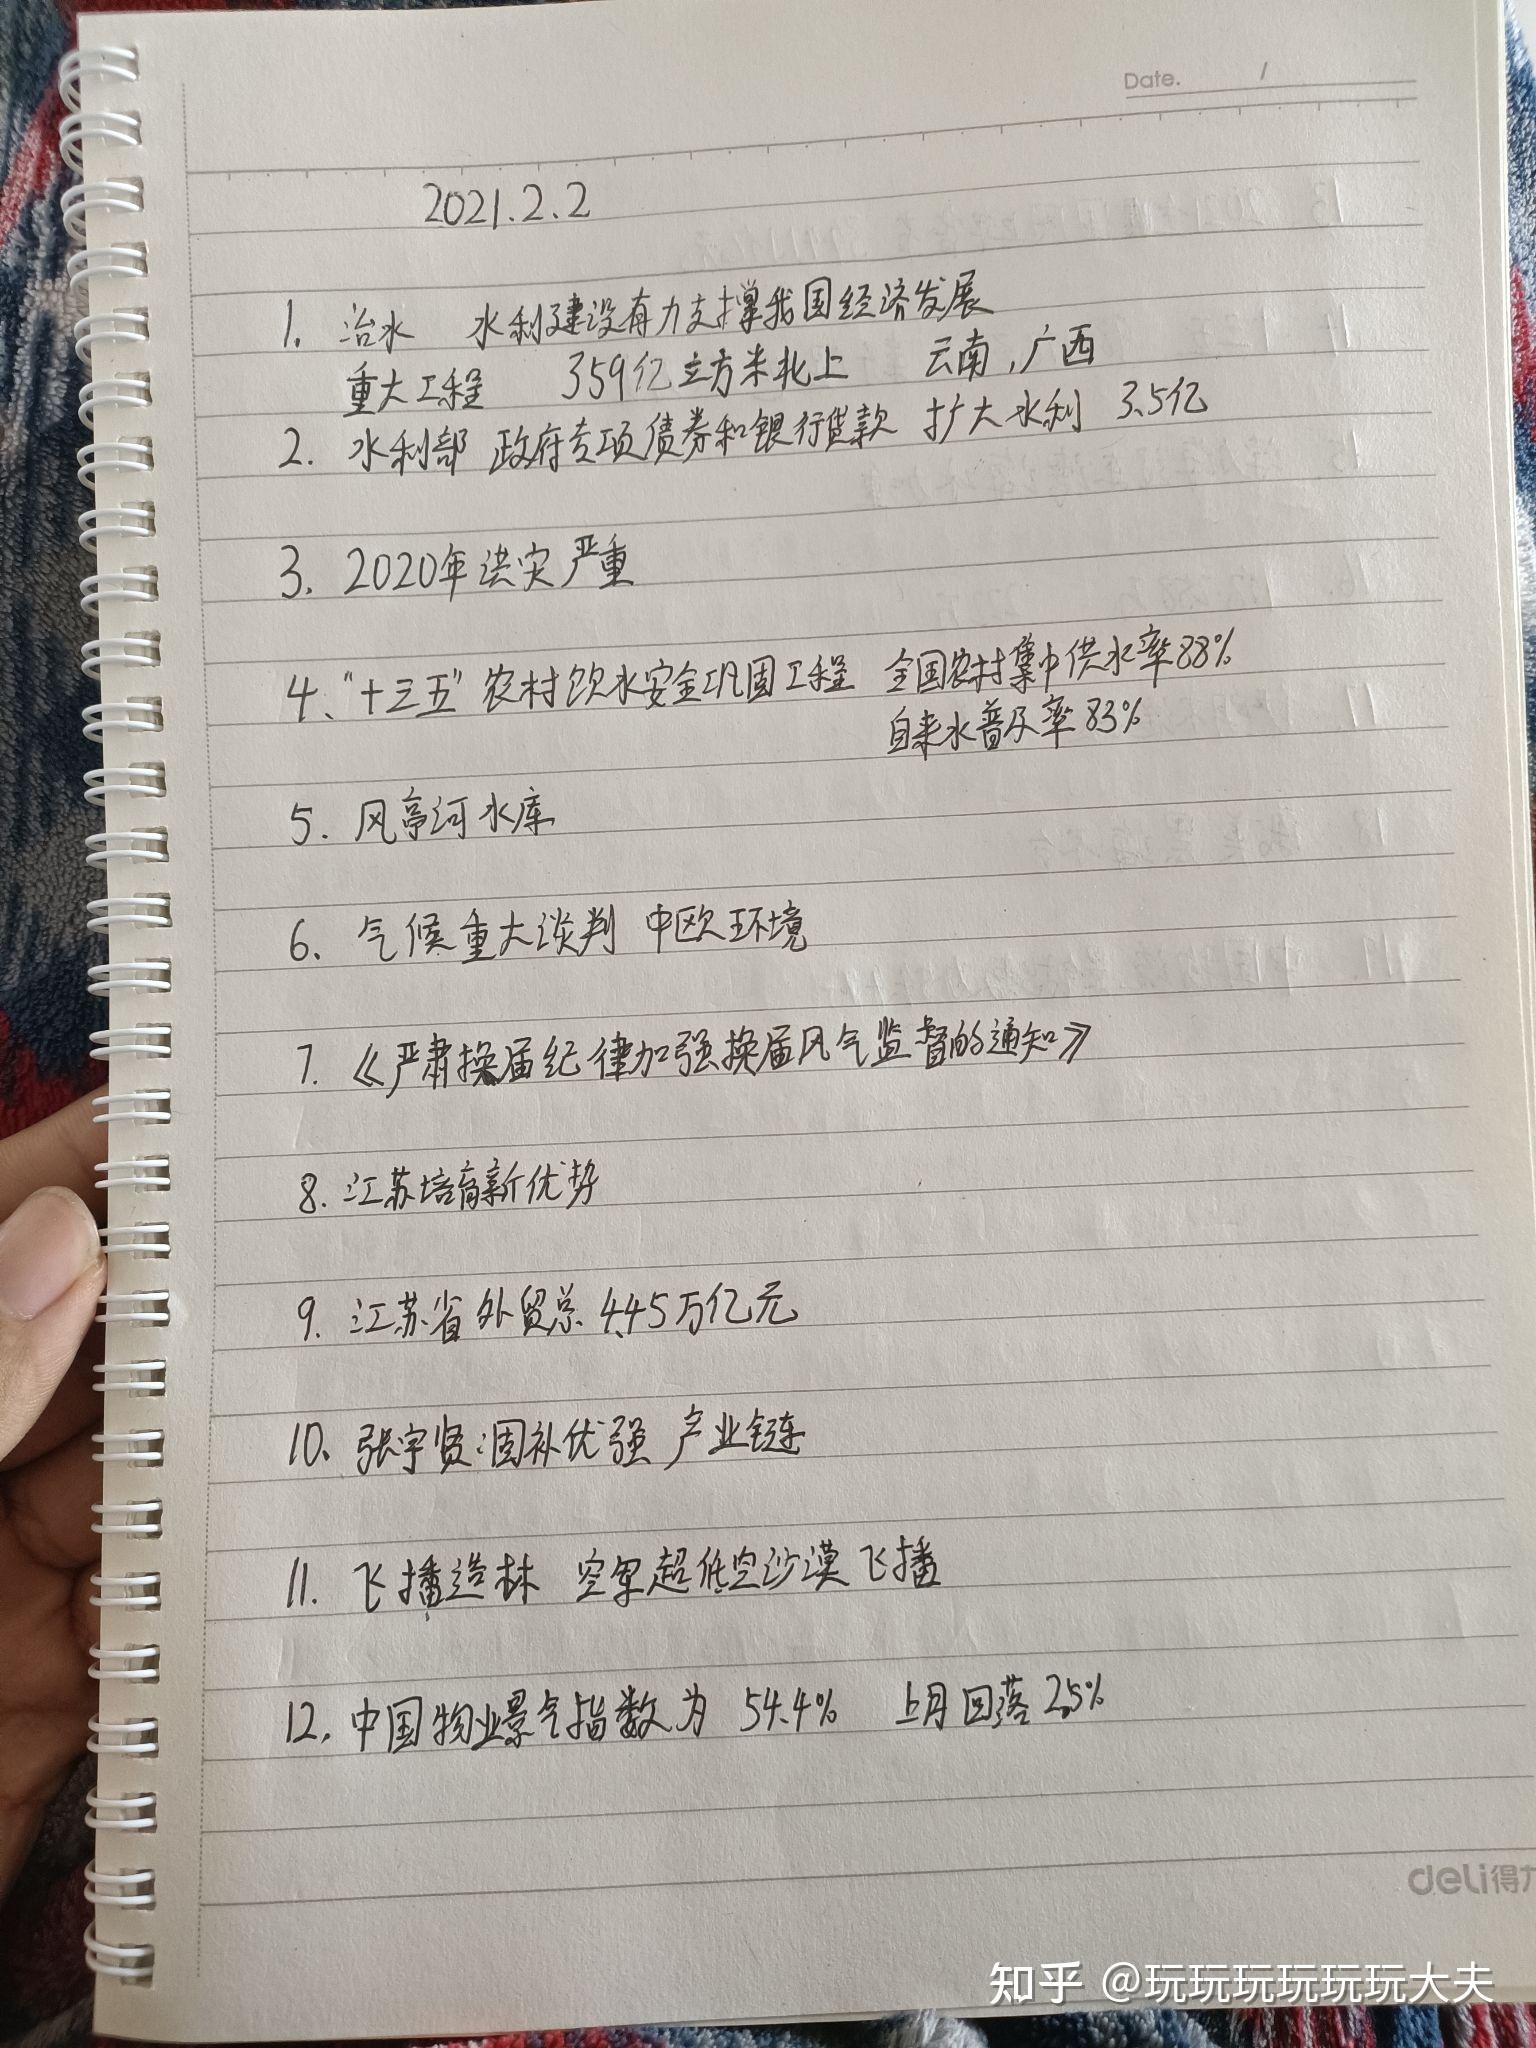 Date. /
2021.2.2
1. 治水 水利建设有力支撑我国经济发展
重大工程 359亿立方米北上 云南,广西
2. 水利部 政府专项债券和银行贷款 扩大水利 3.5亿
3. 2020年洪灾严重
4、"十三五"农村饮水安全巩固工程 全国农村集中供水率88%
自来水普及率83%
5. 风亭河水库
6、气候重大谈判 中欧环境
7. 《严肃换届纪律加强换届风气监督的通知》
8. 江苏培育新优势
9. 江苏省外贸总4.45万亿元
10、张宇贤:固补优强 产业链
11. 飞播造林 空军超低空沙漠飞播
12, 中国物业景气指数为 54.4% 上月回落2.5%
deli得力
知乎 @玩玩玩玩玩玩大夫